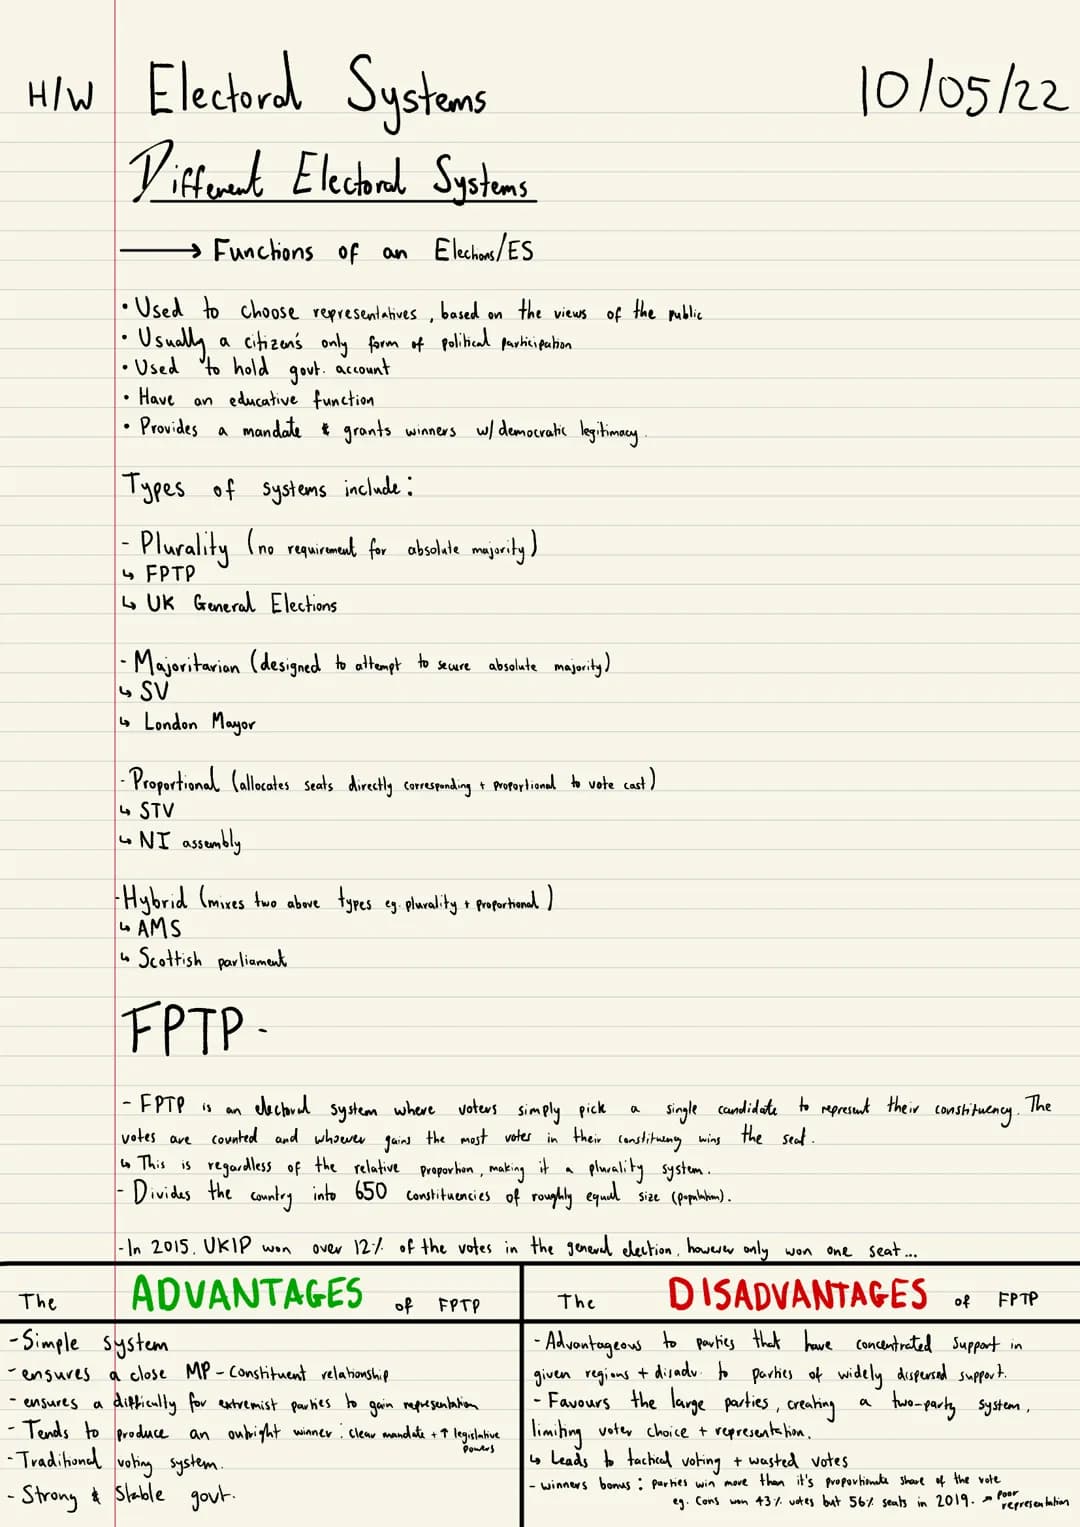 H/W Electoral Systems 10/05/22
Different Electoral Systems
→ Functions of an Elections/ES
• Used to choose representatives, based on the views of the public
• Usually a citizen's only form of political participation
• Used to hold govt. account
• Have an educative function
• Provides a mandate & grants winners w/ democratic legitimacy.
Types of systems include:
- Plurality (no requirement for absolute majority)
↳ FPTP
↳ UK General Elections
- Majoritarian (designed to attempt to secure absolute majority)
↳ SV
↳ London Mayor
- Proportional (allocates seats directly corresponding + proportional to vote cast)
↳ STV
↳ NI assembly
- Hybrid (mixes two above types eg. plurality + proportional)
↳ AMS
↳ Scottish parliament
FPTP -
- FPTP is an electoral system where voters simply pick a single candidate to represent their constituency. The
votes are counted and whoever gains the most votes in their constituency wins the seat.
↳ This is regardless of the relative proportion, making it a plurality system.
- Divides the country into 650 constituencies of roughly equal size (population).
- In 2015, UKIP won over 12% of the votes in the general election, however only won one seat...
The ADVANTAGES of FPTP
- Simple system
- ensures a close MP - Constituent relationship
- ensures a difficulty for extremist parties to gain representation
- Tends to produce an outright winner: clear mandate + ↑ legislative
powers
- Traditional voting system.
- Strong & Stable govt.
The DISADVANTAGES of FPTP
- Advantageous to parties that have concentrated support in
given regions + disadv. to parties of widely dispersed support.
- Favours the large parties, creating a two-party system,
limiting voter choice + representation.
↳ Leads to tactical voting + wasted votes
- winners bonus: parties win more than it's proportionate share of the vote
eg. Cons won 43% votes but 56% seats in 2019. → poor
representation